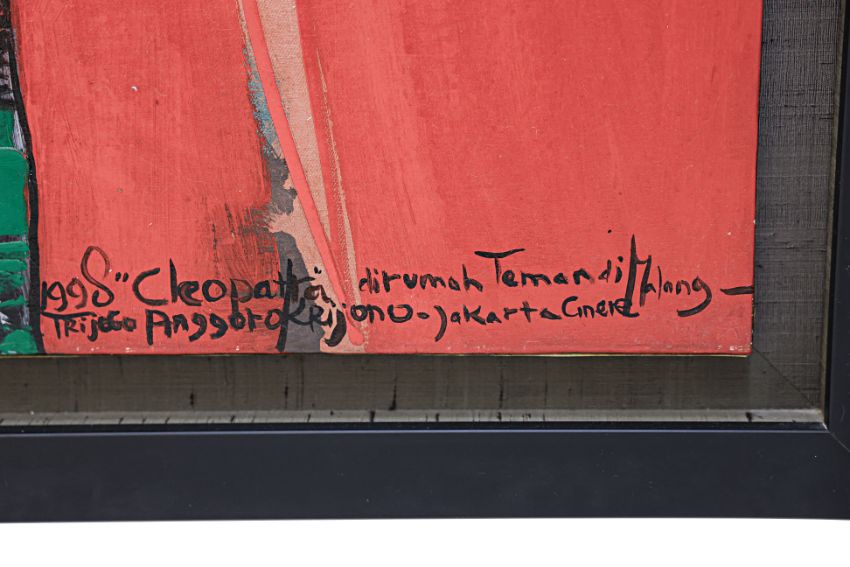 1998 "Cleopatra" dirumah Teman di Malang —
TRijoto Anggoro KRijono - jakarta Cinere